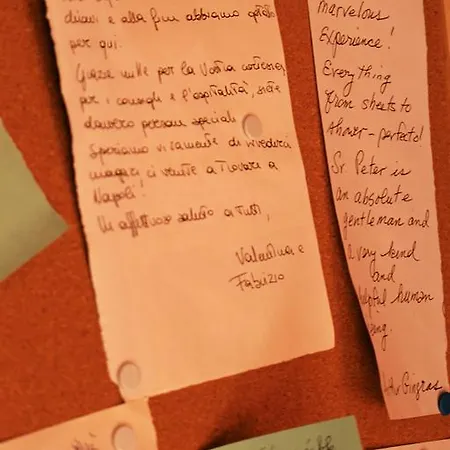 e alla fin abbiamo
per qui.
Grazie mille per la Vostra cortesia,
per i consigli e l'ospitalità, siete
davvero persone speciali
Speriamo vivamente di rivederci
magari, ci venite a trovare a
Napoli!
Un affettuoso saluto a tutti,
Valentina e
Fabrizio
marvelous
Experience!
Everything
from sheets to
shower-perfects!
Sr. Peter is
an absolute
gentleman and
a very kind
and
helpful human
ing.
Gingras